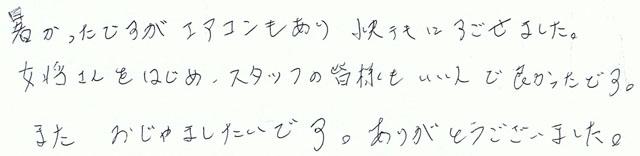 暑かったですがエアコンもあり 快テキにすごせました。
女将さんをはじめ、スタッフの皆様もいい人で良かったです。
また おじゃましたいです。ありがとうございました。